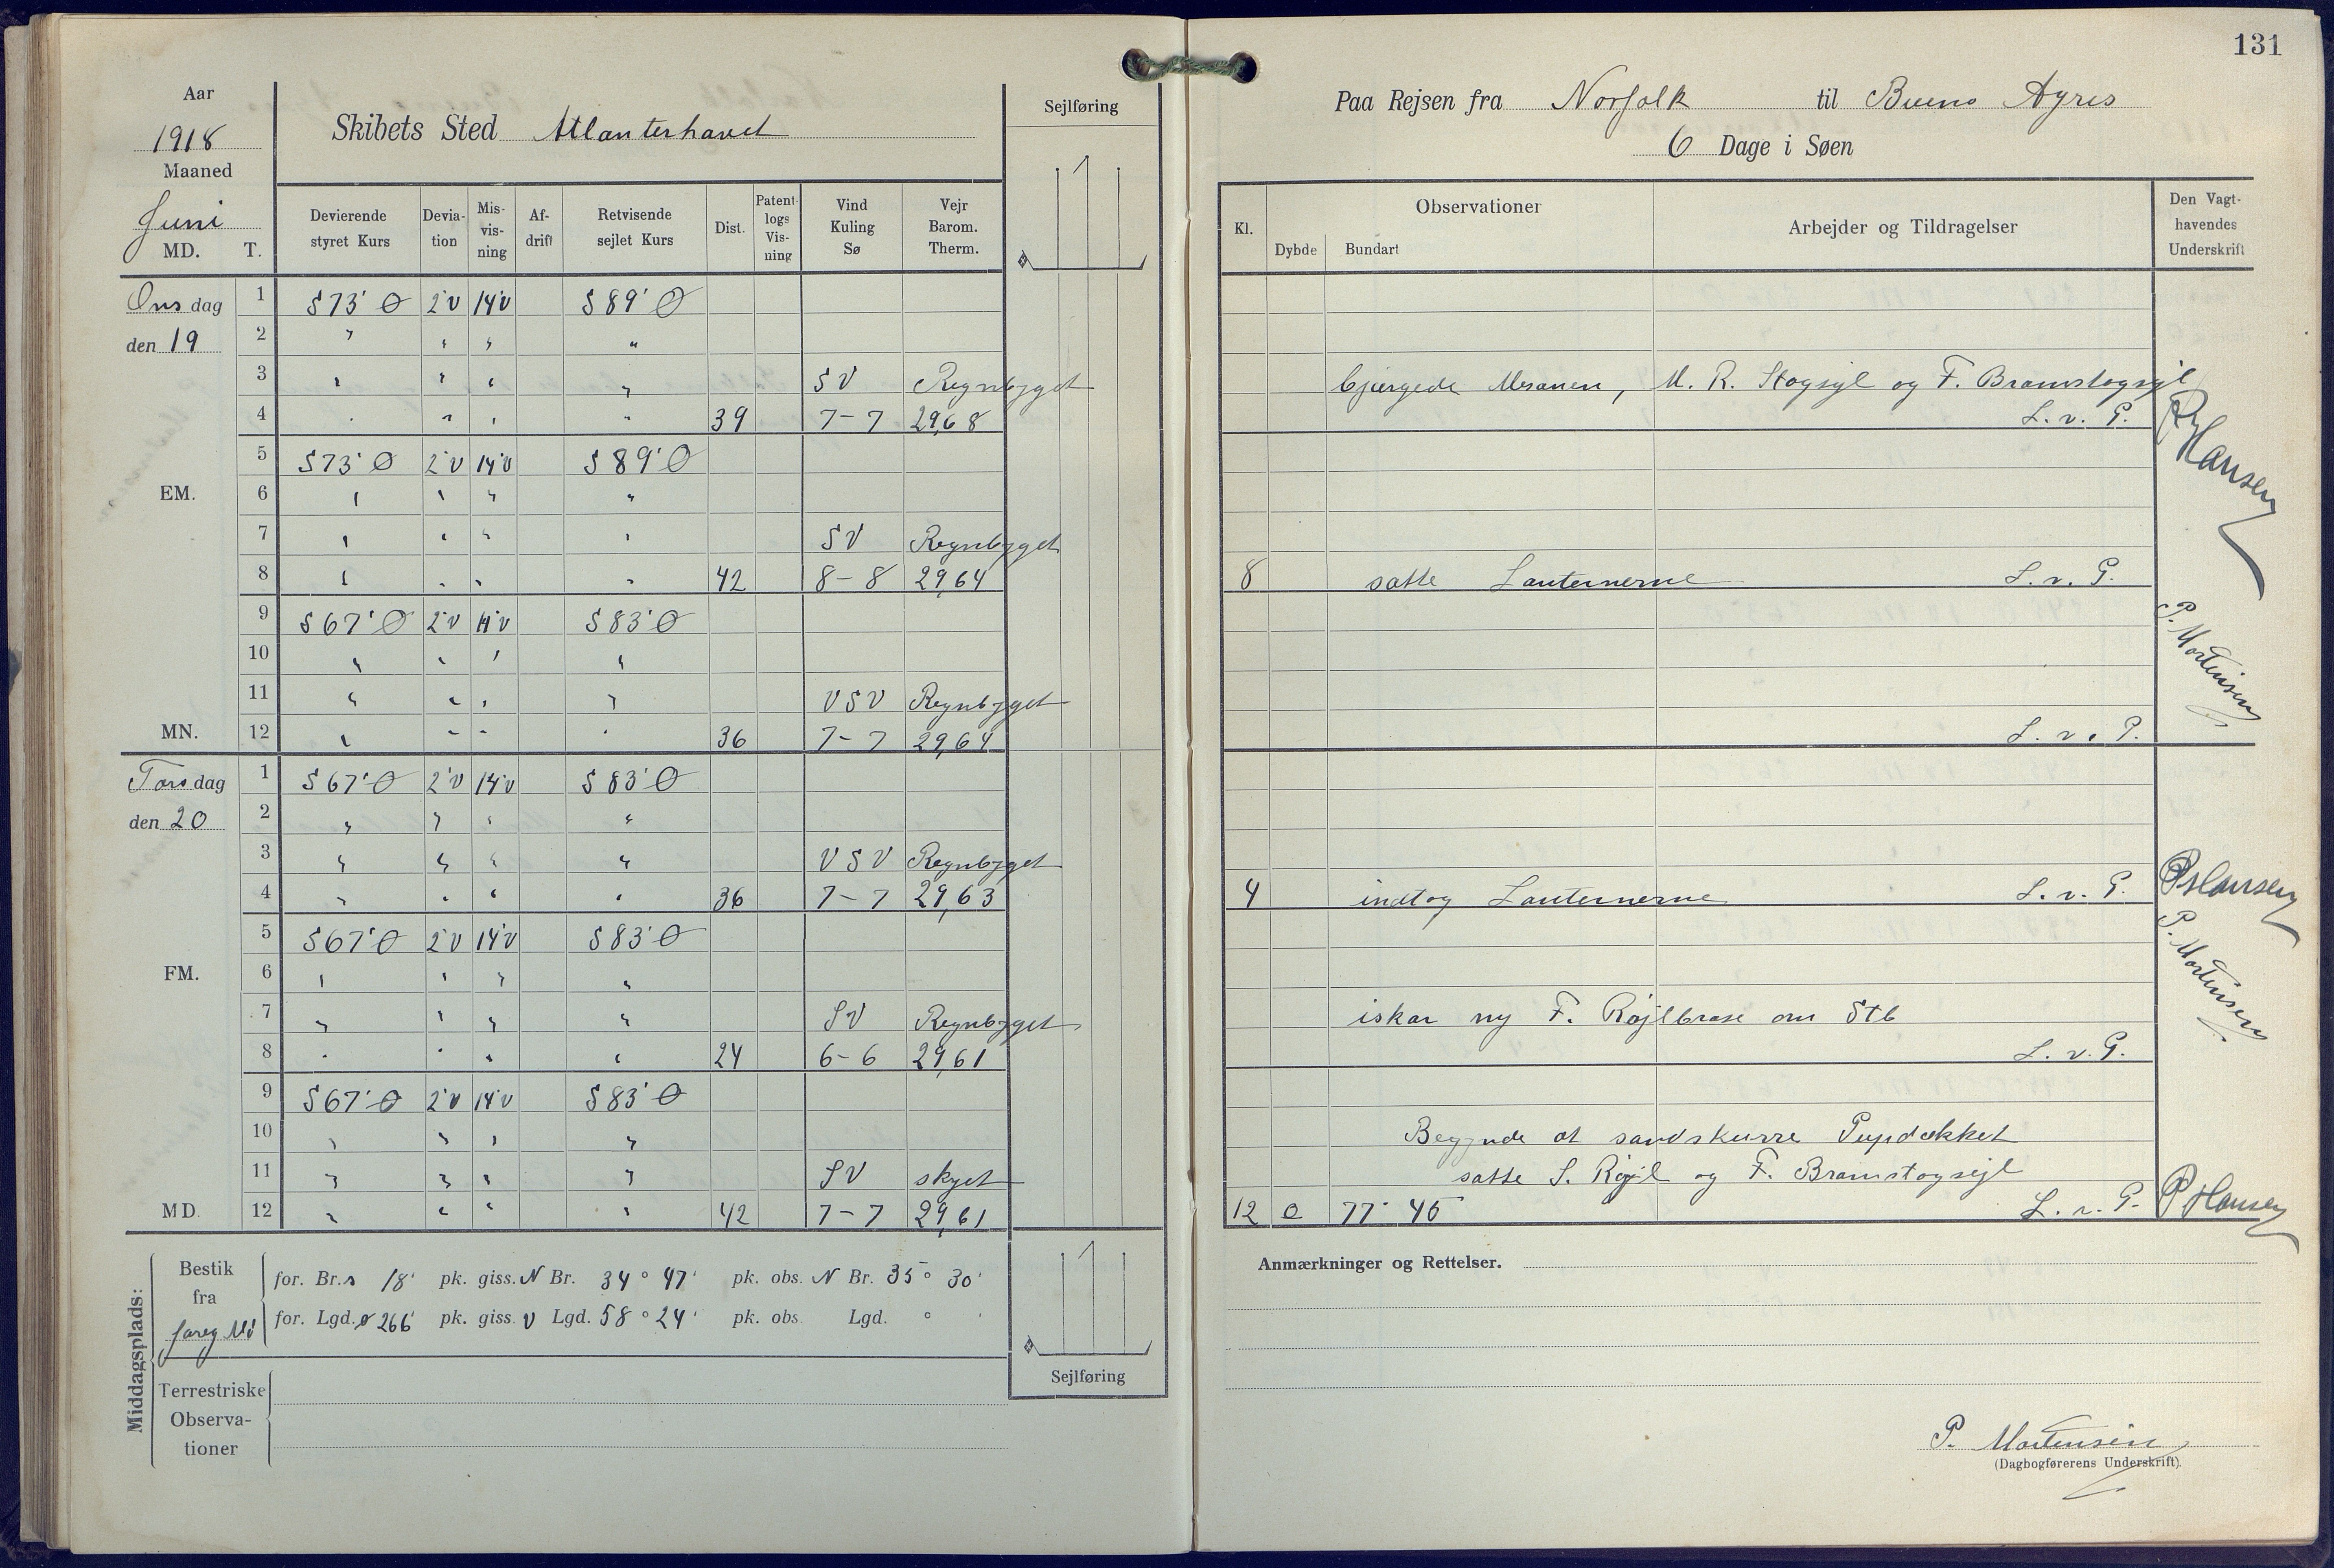 131
Aar
1918
Maaned
Juni
MD. T.
Skibets Sted Atlanterhavet
Sejlføring
Paa Rejsen fra Norfolk til Buenos Ayres
6 Dage i Søen
Devierende styret Kurs
Devia-tion
Mis-vis-ning
Af-drift
Retvisende sejlet Kurs
Dist.
Patent-logs Vis-ning
Vind Kuling Sø
Vejr Barom. Therm.
Kl.
Observationer
Dybde Bundart
Arbejder og Tildragelser
Den Vagt-havendes Underskrift
Onsdag 1 S 73° Ø 2°V 14°V S 89° Ø
den 19 2 " " " "
3 " " " " SV Regnbyget bjærgede Mesanen, M. R. Stagsejl og F. Bramstagsejl
4 " " " " 39 7-7 29,68 L. v. P. P Hansen
5 S 73° Ø 2°V 14°V S 89° Ø
EM. 6 " " " "
7 " " " " SV Regnbyget
8 " " " " 42 8-8 29,64 8 satte Lanternerne L. v. P.
9 S 67° Ø 2°V 14°V S 83° Ø P. Mortensen
10 " " " "
11 " " " " VSV Regnbyget
MN. 12 " " " " 36 7-7 29,64 L. v. P.
Torsdag 1 S 67° Ø 2°V 14°V S 83° Ø
den 20 2 " " " "
3 " " " " VSV Regnbyget
4 " " " " 36 7-7 29,63 4 indtog Lanternerne L. v. P. P Hansen
5 S 67° Ø 2°V 14°V S 83° Ø P. Mortensen
FM. 6 " " " "
7 " " " " SV Regnbyget iskar ny F. Røjlbrase om Stb
8 " " " " 24 6-6 29,61 L. v. P.
9 S 67° Ø 2°V 14°V S 83° Ø
10 " " " " Begynde at sandskurre Pupdækket
11 " " " " SV skyet satte S. Røjl og F. Bramstagsejl
MD. 12 " " " " 42 7-7 29,61 12 77° 45 L. v. P. P Hansen
Middagsplads:
Bestik fra foreg Md
for. Br. s 18' pk. giss. N Br. 34° 47' pk. obs. N Br. 35° 30'
for. Lgd. ø 266' pk. giss. V Lgd. 58° 24' pk. obs. Lgd. ° '
Terrestriske Observa-tioner
Sejlføring
Anmærkninger og Rettelser.
P. Mortensen
(Dagbogførerens Underskrift).